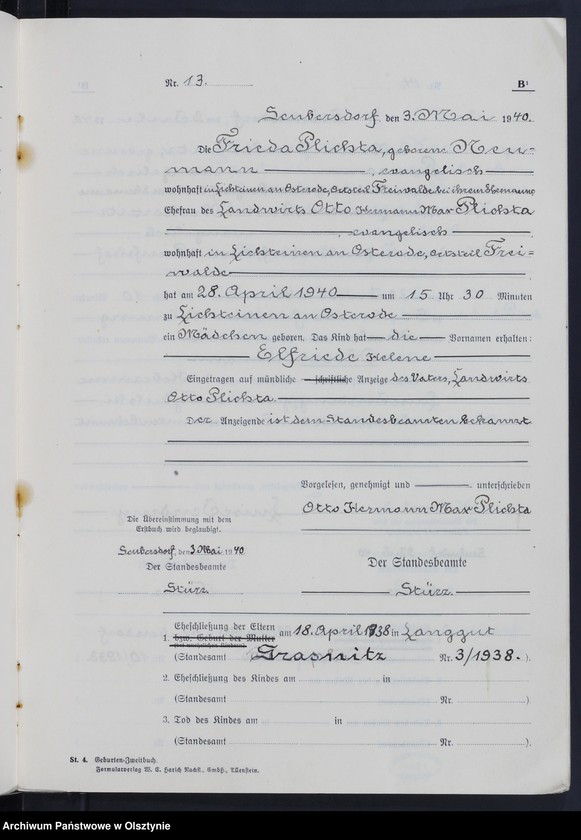 Nr. 13.
B¹
Seubersdorf, den 3. Mai 1940.
Die Frieda Plichta, geborene Neu=
mann, evangelisch
wohnhaft in Lichteinen an Osterode, Ortsteil Freiwalde bei ihrem Ehemann,
Ehefrau des Landwirts Otto Hermann Max Plichta
, evangelisch
wohnhaft in Lichteinen an Osterode, Ortsteil Frei=
walde
hat am 28. April 1940 um 15 Uhr 30 Minuten
zu Lichteinen an Osterode
ein Mädchen geboren. Das Kind hat die Vornamen erhalten:
Elfriede Helene
Eingetragen auf mündliche schriftliche Anzeige des Vaters, Landwirts
Otto Plichta.
Der Anzeigende ist dem Standesbeamten bekannt
Vorgelesen, genehmigt und unterschrieben
Otto Hermann Max Plichta
Die Übereinstimmung mit dem
Erstbuch wird beglaubigt.
Seubersdorf, den 3. Mai 1940
Der Standesbeamte
Der Standesbeamte
Stürz.
Stürz.
1. Eheschließung der Eltern am 18. April 1938 in Langgut
bzw. Geburt der Mutter
(Standesamt Grasnitz Nr. 3/1938.).
2. Eheschließung des Kindes am in
(Standesamt Nr. ).
3. Tod des Kindes am in
(Standesamt Nr. ).
St. 4. Geburten-Zweitbuch.
Formularverlag W. E. Harich Nachf., GmbH., Allenstein.
Archiwum Państwowe w Olsztynie